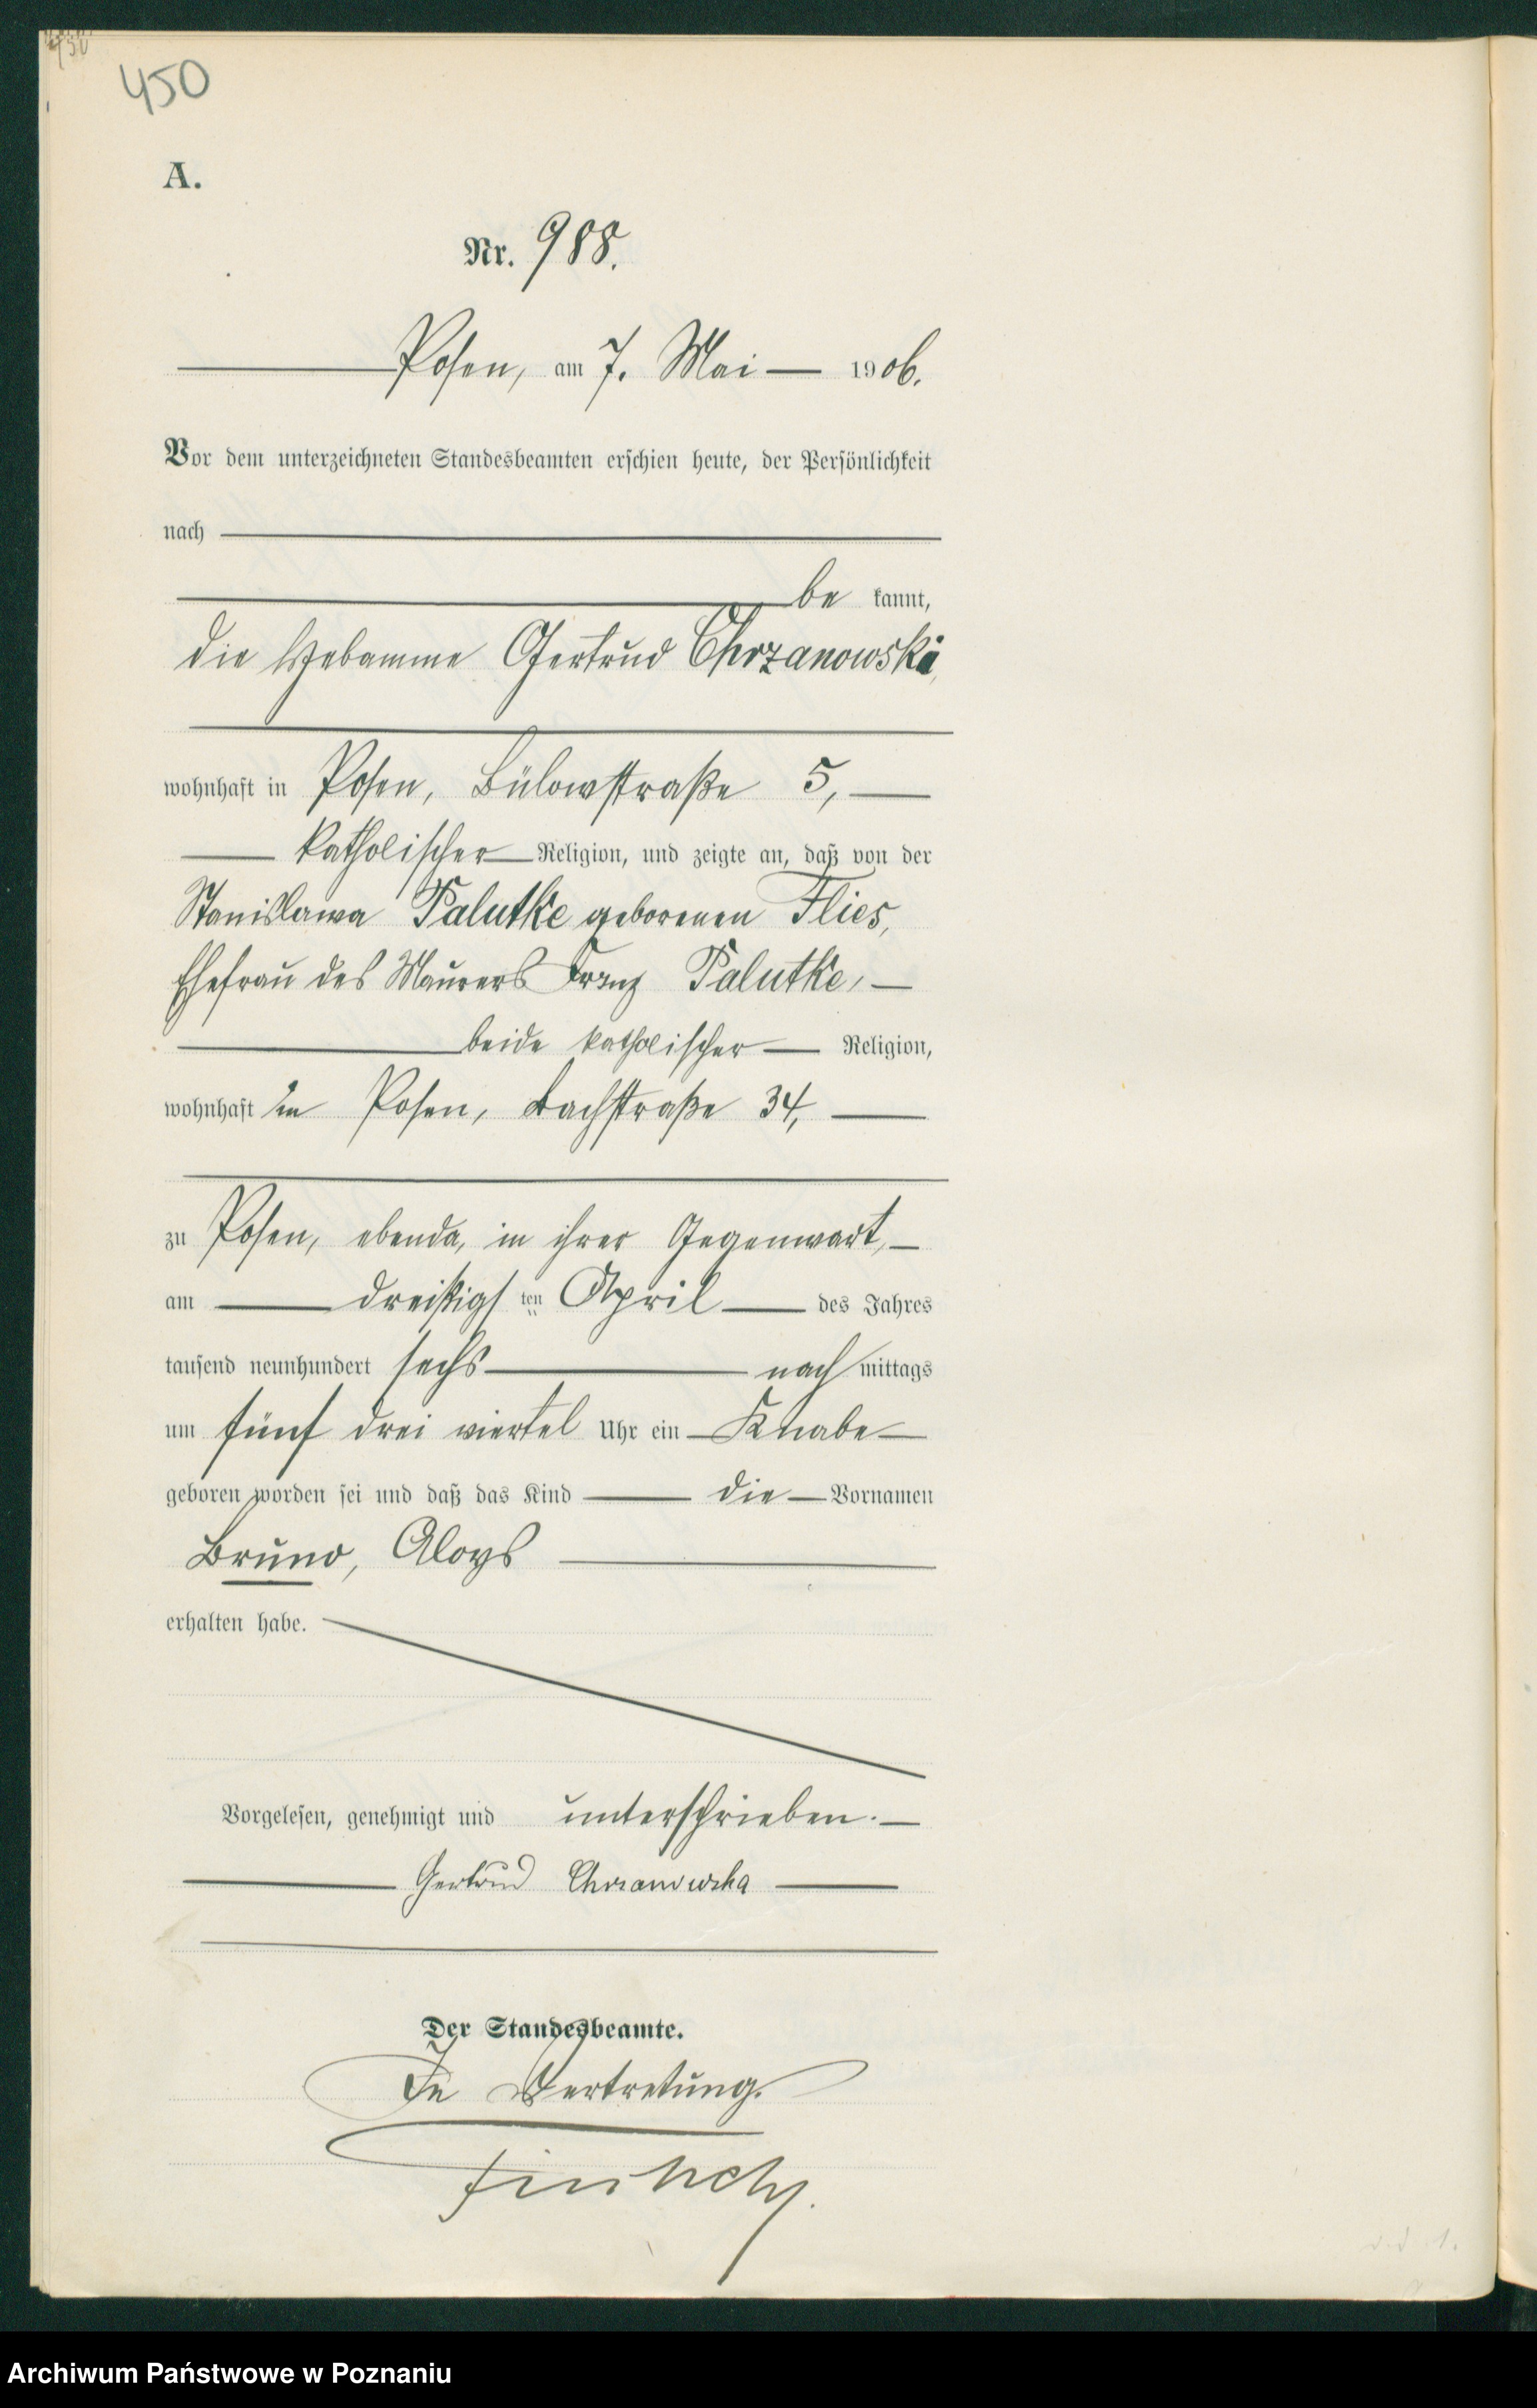 450
A.
Nr. 988.
Posen, am 7. Mai 1906.
Vor dem unterzeichneten Standesbeamten erschien heute, der Persönlichkeit
nach
be kannt,
die Hebamme Gertrud Chrzanowska,
wohnhaft in Posen, Bülowstraße 5,
katholischer Religion, und zeigte an, daß von der
Stanislawa Palutke geborenen Flies,
Ehefrau des Maurers Franz Palutke,
beide katholischer Religion,
wohnhaft in Posen, Bachstraße 34,
zu Posen, ebenda, in ihrer Gegenwart,
am dreißigsten April des Jahres
tausend neunhundert sechs nach mittags
um fünf drei viertel Uhr ein Knabe
geboren worden sei und daß das Kind die Vornamen
Bruno, Aloys
erhalten habe.
Vorgelesen, genehmigt und unterschrieben.
Gertrud Chrzanowska
Der Standesbeamte.
In Vertretung.
Archiwum Państwowe w Poznaniu